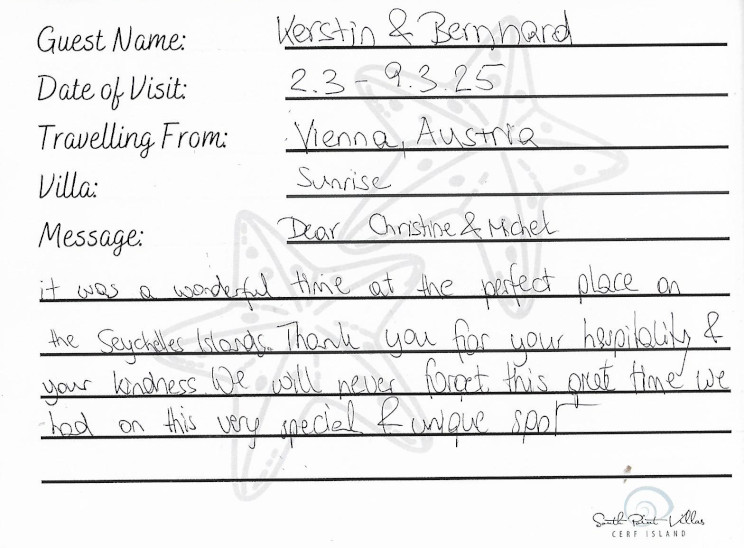 Guest Name: Kerstin & Bernhard
Date of Visit: 2.3 - 9.3.25
Travelling From: Vienna, Austria
Villa: Sunrise
Message: Dear Christine & Michel
it was a wonderful time at the perfect place on
the Seychelles Islands. Thank you for your hospitality &
your kindness. We will never forget this great time we
had on this very special & unique spot
South Point Villas
CERF ISLAND